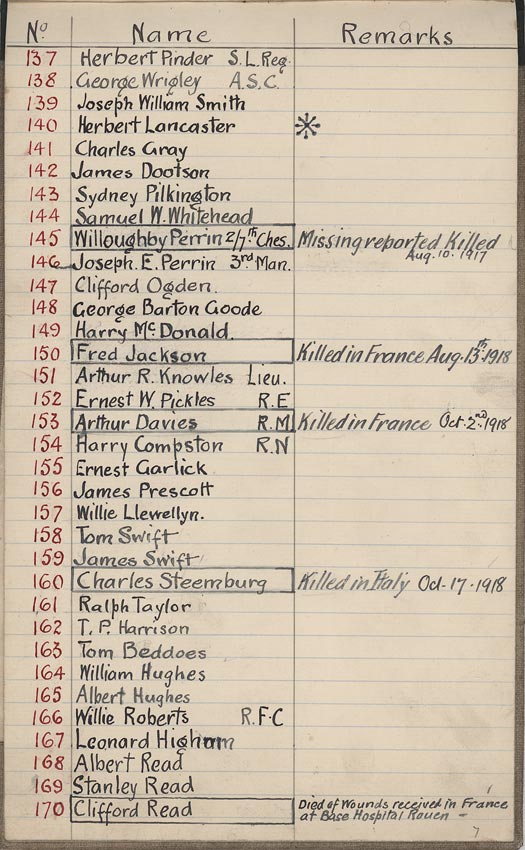 No Name Remarks
137 Herbert Pinder S.L.Reg.
138 George Wrigley A.S.C.
139 Joseph William Smith
140 Herbert Lancaster ※
141 Charles Gray
142 James Dootson
143 Sydney Pilkington
144 Samuel W. Whitehead
145 Willoughby Perrin 2/7th Ches. Missing reported Killed
Aug. 10. 1917
146 Joseph. E. Perrin 3rd Man.
147 Clifford Ogden.
148 George Barton Goode
149 Harry McDonald.
150 Fred Jackson Killed in France Aug. 13th 1918
151 Arthur R. Knowles Lieu.
152 Ernest W. Pickles R.E
153 Arthur Davies R.M. Killed in France Oct. 2nd 1918
154 Harry Compston R.N
155 Ernest Garlick
156 James Prescott
157 Willie Llewellyn.
158 Tom Swift
159 James Swift
160 Charles Steemburg Killed in Italy Oct-17-1918
161 Ralph Taylor
162 T. P. Harrison
163 Tom Beddoes
164 William Hughes
165 Albert Hughes
166 Willie Roberts R.F.C
167 Leonard Higham
168 Albert Read
169 Stanley Read
170 Clifford Read Died of Wounds received in France
at Base Hospital Rouen -
7